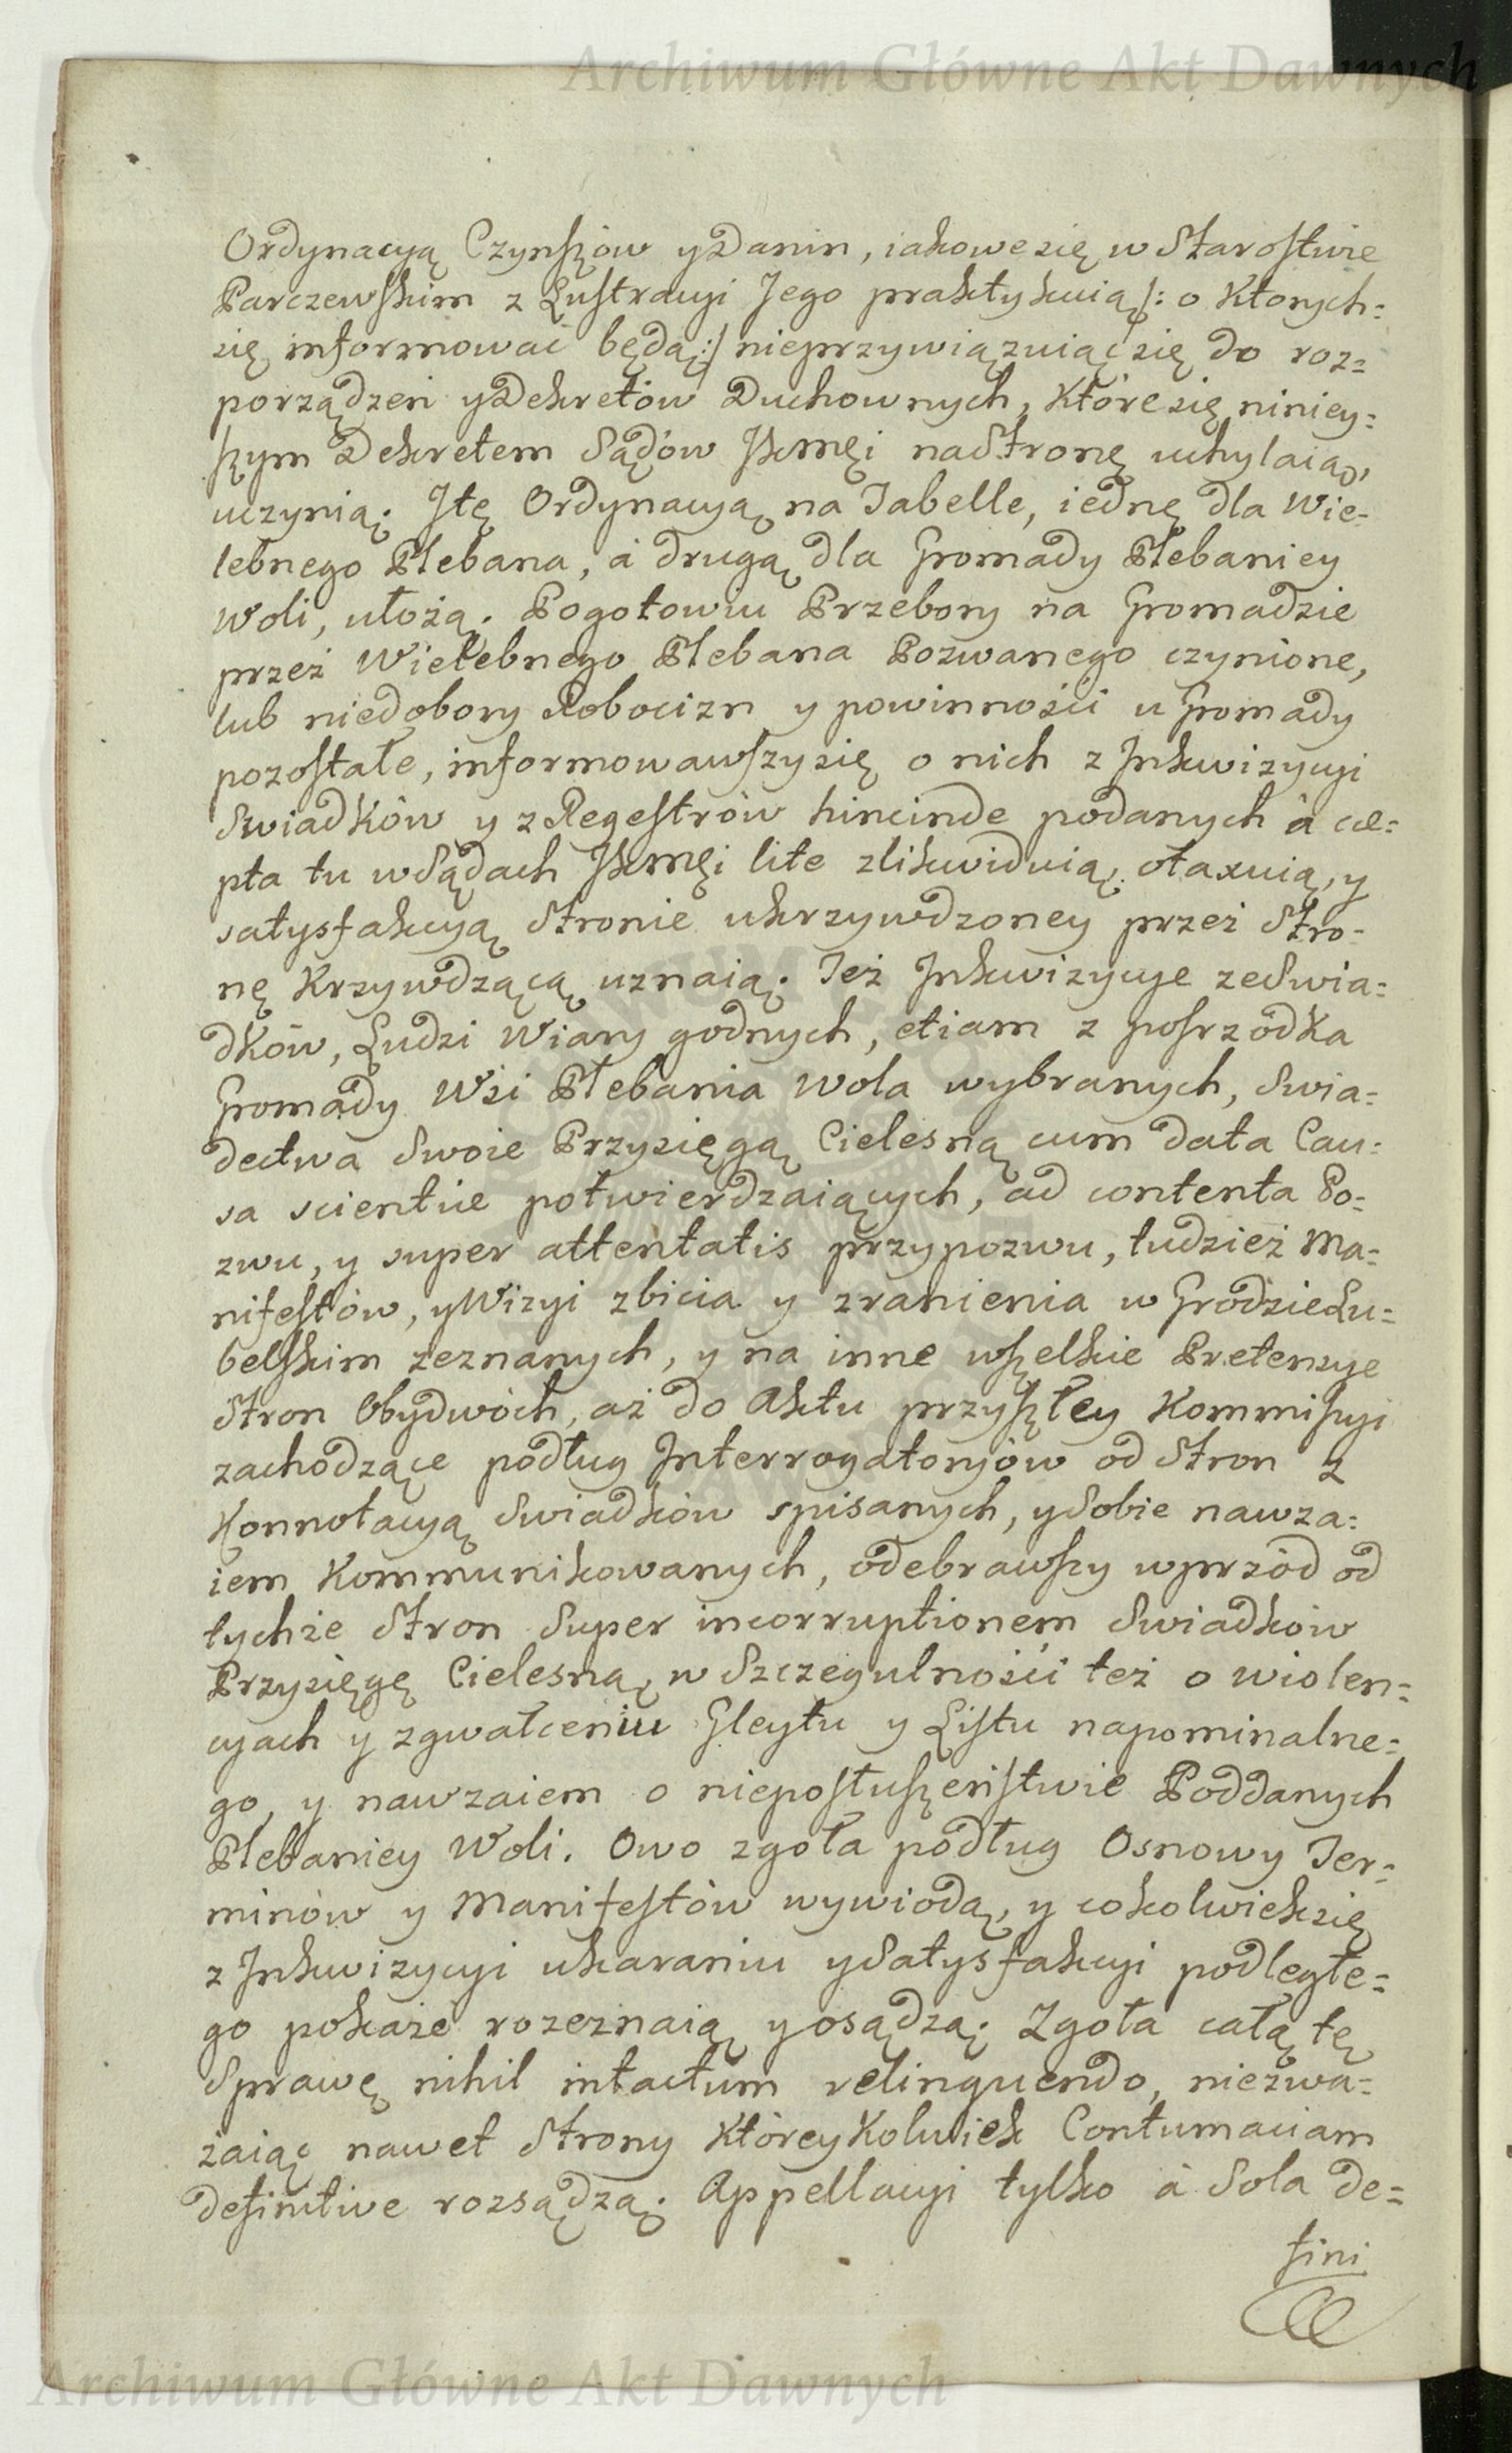 Archiwum Główne Akt Dawnych
Ordynacyą Czynszów y Danin, iakowe się w Starostwie
Parczewskim z Lustracyi Jego praktykuią /: o ktorych=
się informować będą :/ nieprzywiązuiąc się do roz=
porządzeń y Dekretów Duchownych, które się niniey=
szym Dekretem Sądów JKMci na Stronę uchylaią,
uczynią. Jtę Ordynacyą na Tabelle, iednę dla Wie=
lebnego Plebana, á drugą dla Gromady Plebaniey
Woli, ułożą. Pogotowiu Przebory na Gromadzie
przez Wielebnego Plebana Pozwanego czynione,
lub niedobory Robocizn y powinności u Gromady
pozostałe, informowawszy się o nich z Jnkwizycyi
Swiadków y z Regestrów hincinde podanych á cce=
pta tu w Sądach JKMci lite zlikwiduią, otaxuią, y
satysfakcyą Stronie ukrzywdzoney przez Stro=
nę Krzywdzącą uznaią. Też Jnkwizycye ze Swia=
dków, Ludzi Wiary godnych, etiam z posrzódka
Gromady Wsi Plebania Wola wybranych, Swia=
dectwa Swoie Przysięgą Cielesną cum data Cau=
sa scientiæ potwierdzaiących, ad contenta Po=
zwu, y super attentatis przypozwu, tudzież Ma=
nifestów, y Wizyi zbicia y zranienia w Grodzie Lu=
belskim zeznanych, y na inne wszelkie Pretensye
Stron Obydwóch, aż do Aktu przyszłey Kommissyi
zachodzące podług Jnterrogatoryjów od Stron z
Konnotacyą Swiadków spisanych, y Sobie nawza=
iem Kommunikowanych, odebrawszy wprzód od
tychże Stron Super incorruptionem Swiadków
Przysięgę Cielesną, w Szczegulności też o wiolen=
cyach y zgwałceniu Gleytu y Listu napominalne=
go, y nawzaiem o nieposłuszeństwie Poddanych
Plebaniey Woli. Owo zgoła podług Osnowy Ter=
minów y Manifestów wywiodą, y cokolwiek się
z Jnkwizycyi ukaraniu y Satysfakcyi podległe=
go pokaże rozeznaią y osądzą. Zgoła całą tę
Sprawę nihil intactum relinquendo, nieźwa=
żaiąc nawet Strony Którey Kolwiek Contumaciam
definitive rozsądzą. Appellacyi tylko á Sola de=
fini
Archiwum Główne Akt Dawnych